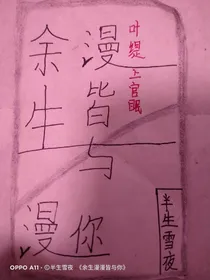 余生漫
漫皆与你
叶缇 上官眠
半生雪夜
OPPO A11 · ©半生雪夜 《余生漫漫皆与你》